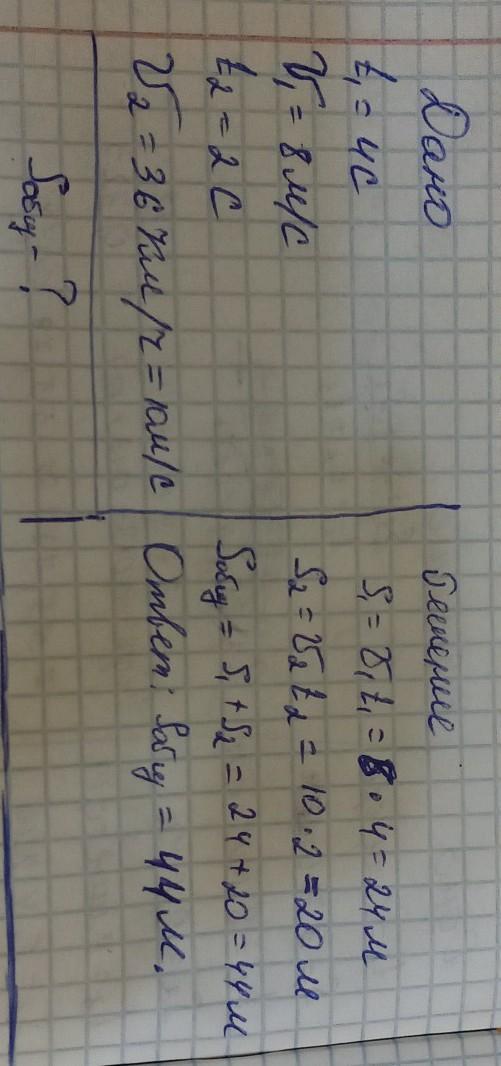 Дано
t₁ = 4с
V₁ = 8 м/с
t₂ = 2 с
V₂ = 36 км/ч = 10м/с
Sобщ - ?
Решение
S₁ = V₁t₁ = 8 · 4 = 24 м
S₂ = V₂t₂ = 10 · 2 = 20 м
Sобщ = S₁ + S₂ = 24 + 20 = 44 м
Ответ: Sобщ = 44 м.